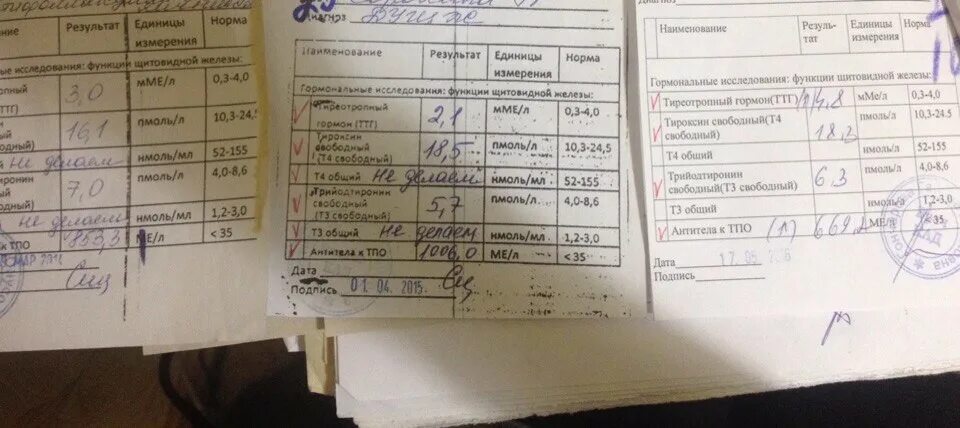 Результат
Единицы измерения
Норма
ные исследования: функции щитовидной железы:
3,0 мМЕ/л 0,3-4,0
(ТТГ)
16,1 пмоль/л 10,3-24,5
не делаем нмоль/мл 52-155
7,0 пмоль/л 4,0-8,6
не делаем нмоль/мл 1,2-3,0
853,3 МЕ/л < 35
Диагноз
Наименование Результат Единицы измерения Норма
Гормональные исследования: функции щитовидной железы:
Тиреотропный гормон (ТТГ) 2,1 мМЕ/л 0,3-4,0
Тироксин свободный (Т4 свободный) 18,5 пмоль/л 10,3-24,5
Т4 общий не делаем нмоль/мл 52-155
Трийодтиронин свободный (Т3 свободный) 5,7 пмоль/л 4,0-8,6
Т3 общий не делаем нмоль/мл 1,2-3,0
Антитела к ТПО 1006,0 МЕ/л < 35
Дата
Подпись 01.04.2015
Наименование Резуль-тат Единицы измерения Норма
Гормональные исследования: функции щитовидной железы:
Тиреотропный гормон(ТТГ) 4.8 мМе/л 0,3-4,0
Тироксин свободный(Т4 свободный) пмоль/л 10,3-24.5
Т4 общий нмоль/л 52-155
Трийодтиронин свободный(Т3 свободный) 6.3 пмоль/л 4,0-8,6
Т3 общий нмоль/л 1,2-3,0
Антитела к ТПО МЕ/л <35
Дата
Подпись